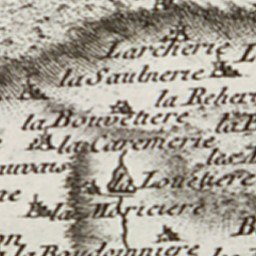 Larcherie L
la Saulnerie
la Reher
la Bouvetiere
la Caremerie
auvais
la Louetiere
la Moriciere
la Baudonniere